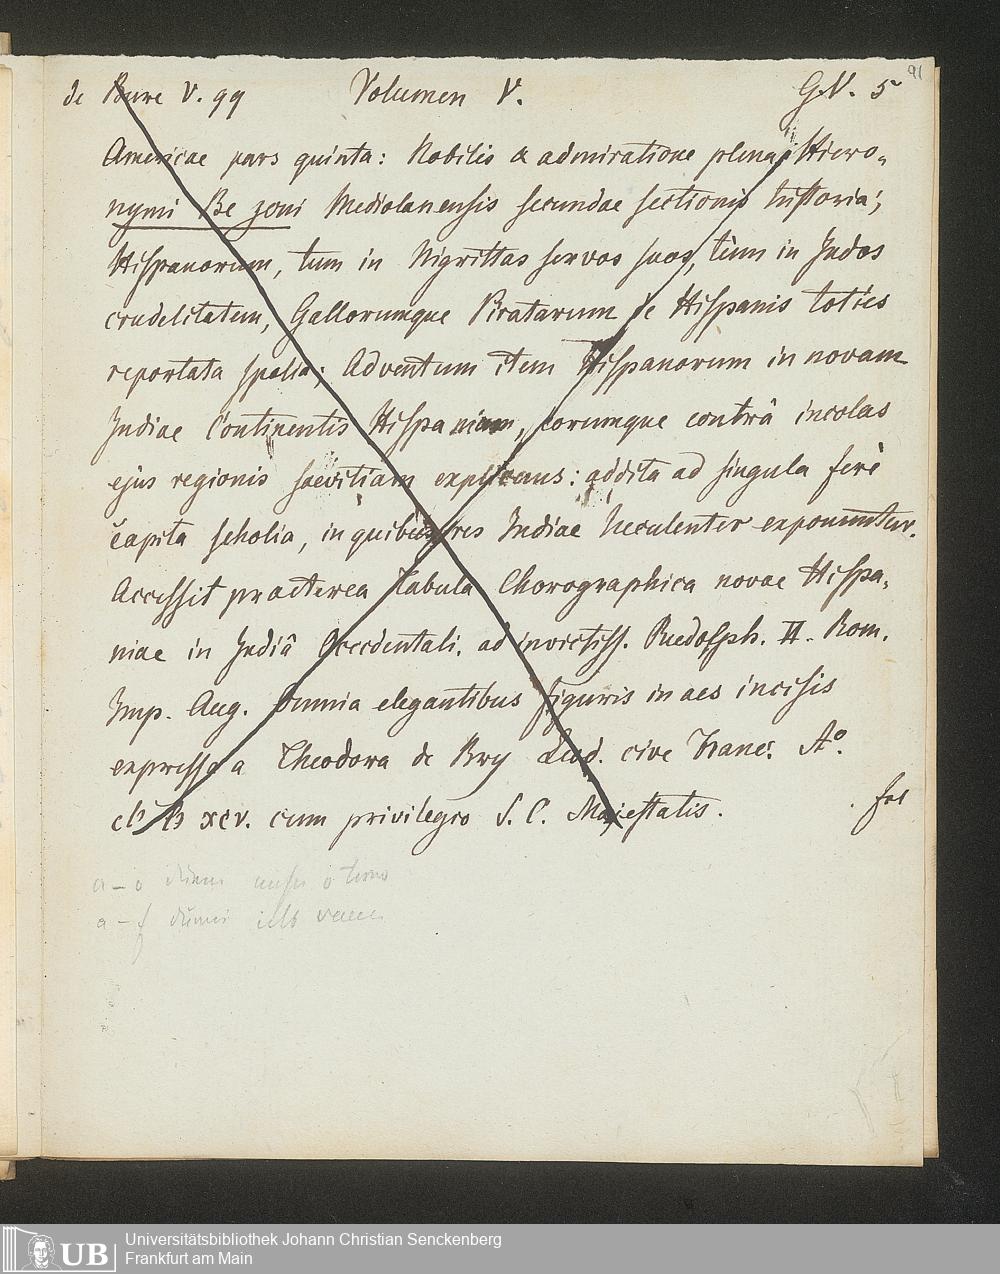 91
de Bure V. 99 Volumen V. G.V. 5
Americae pars quinta: Nobilis & admiratione plena Hiero-
nymi Be zoni Mediolanensis secundae sectionis historia;
Hispanorum, tum in Nigrittas servos suos, tum in Indos
crudelitatem, Gallorumque Piratarum de Hispanis toties
reportata spolia; Adventum item Hispanorum in novam
Indiae Continentis Hispaniam, eorumque contrâ incolas
ejus regionis saevitiam explicans: addita ad singula ferè
capita scholia, in quibus res Indiae luculenter exponuntur.
Accessit praeterea tabula Chorographica novae Hispa-
niae in Indiâ Occidentali. ad invictiss. Rudolph. II. Rom.
Imp. Aug. Omnia elegantibus figuris in aes incisis
expressa a Theodoro de Bry Leod. cive Franc. Aº.
cIɔ Iɔ xcv. cum privilegio S. C. Majestatis. fol
a – o
a – f
Universitätsbibliothek Johann Christian Senckenberg
Frankfurt am Main
UB